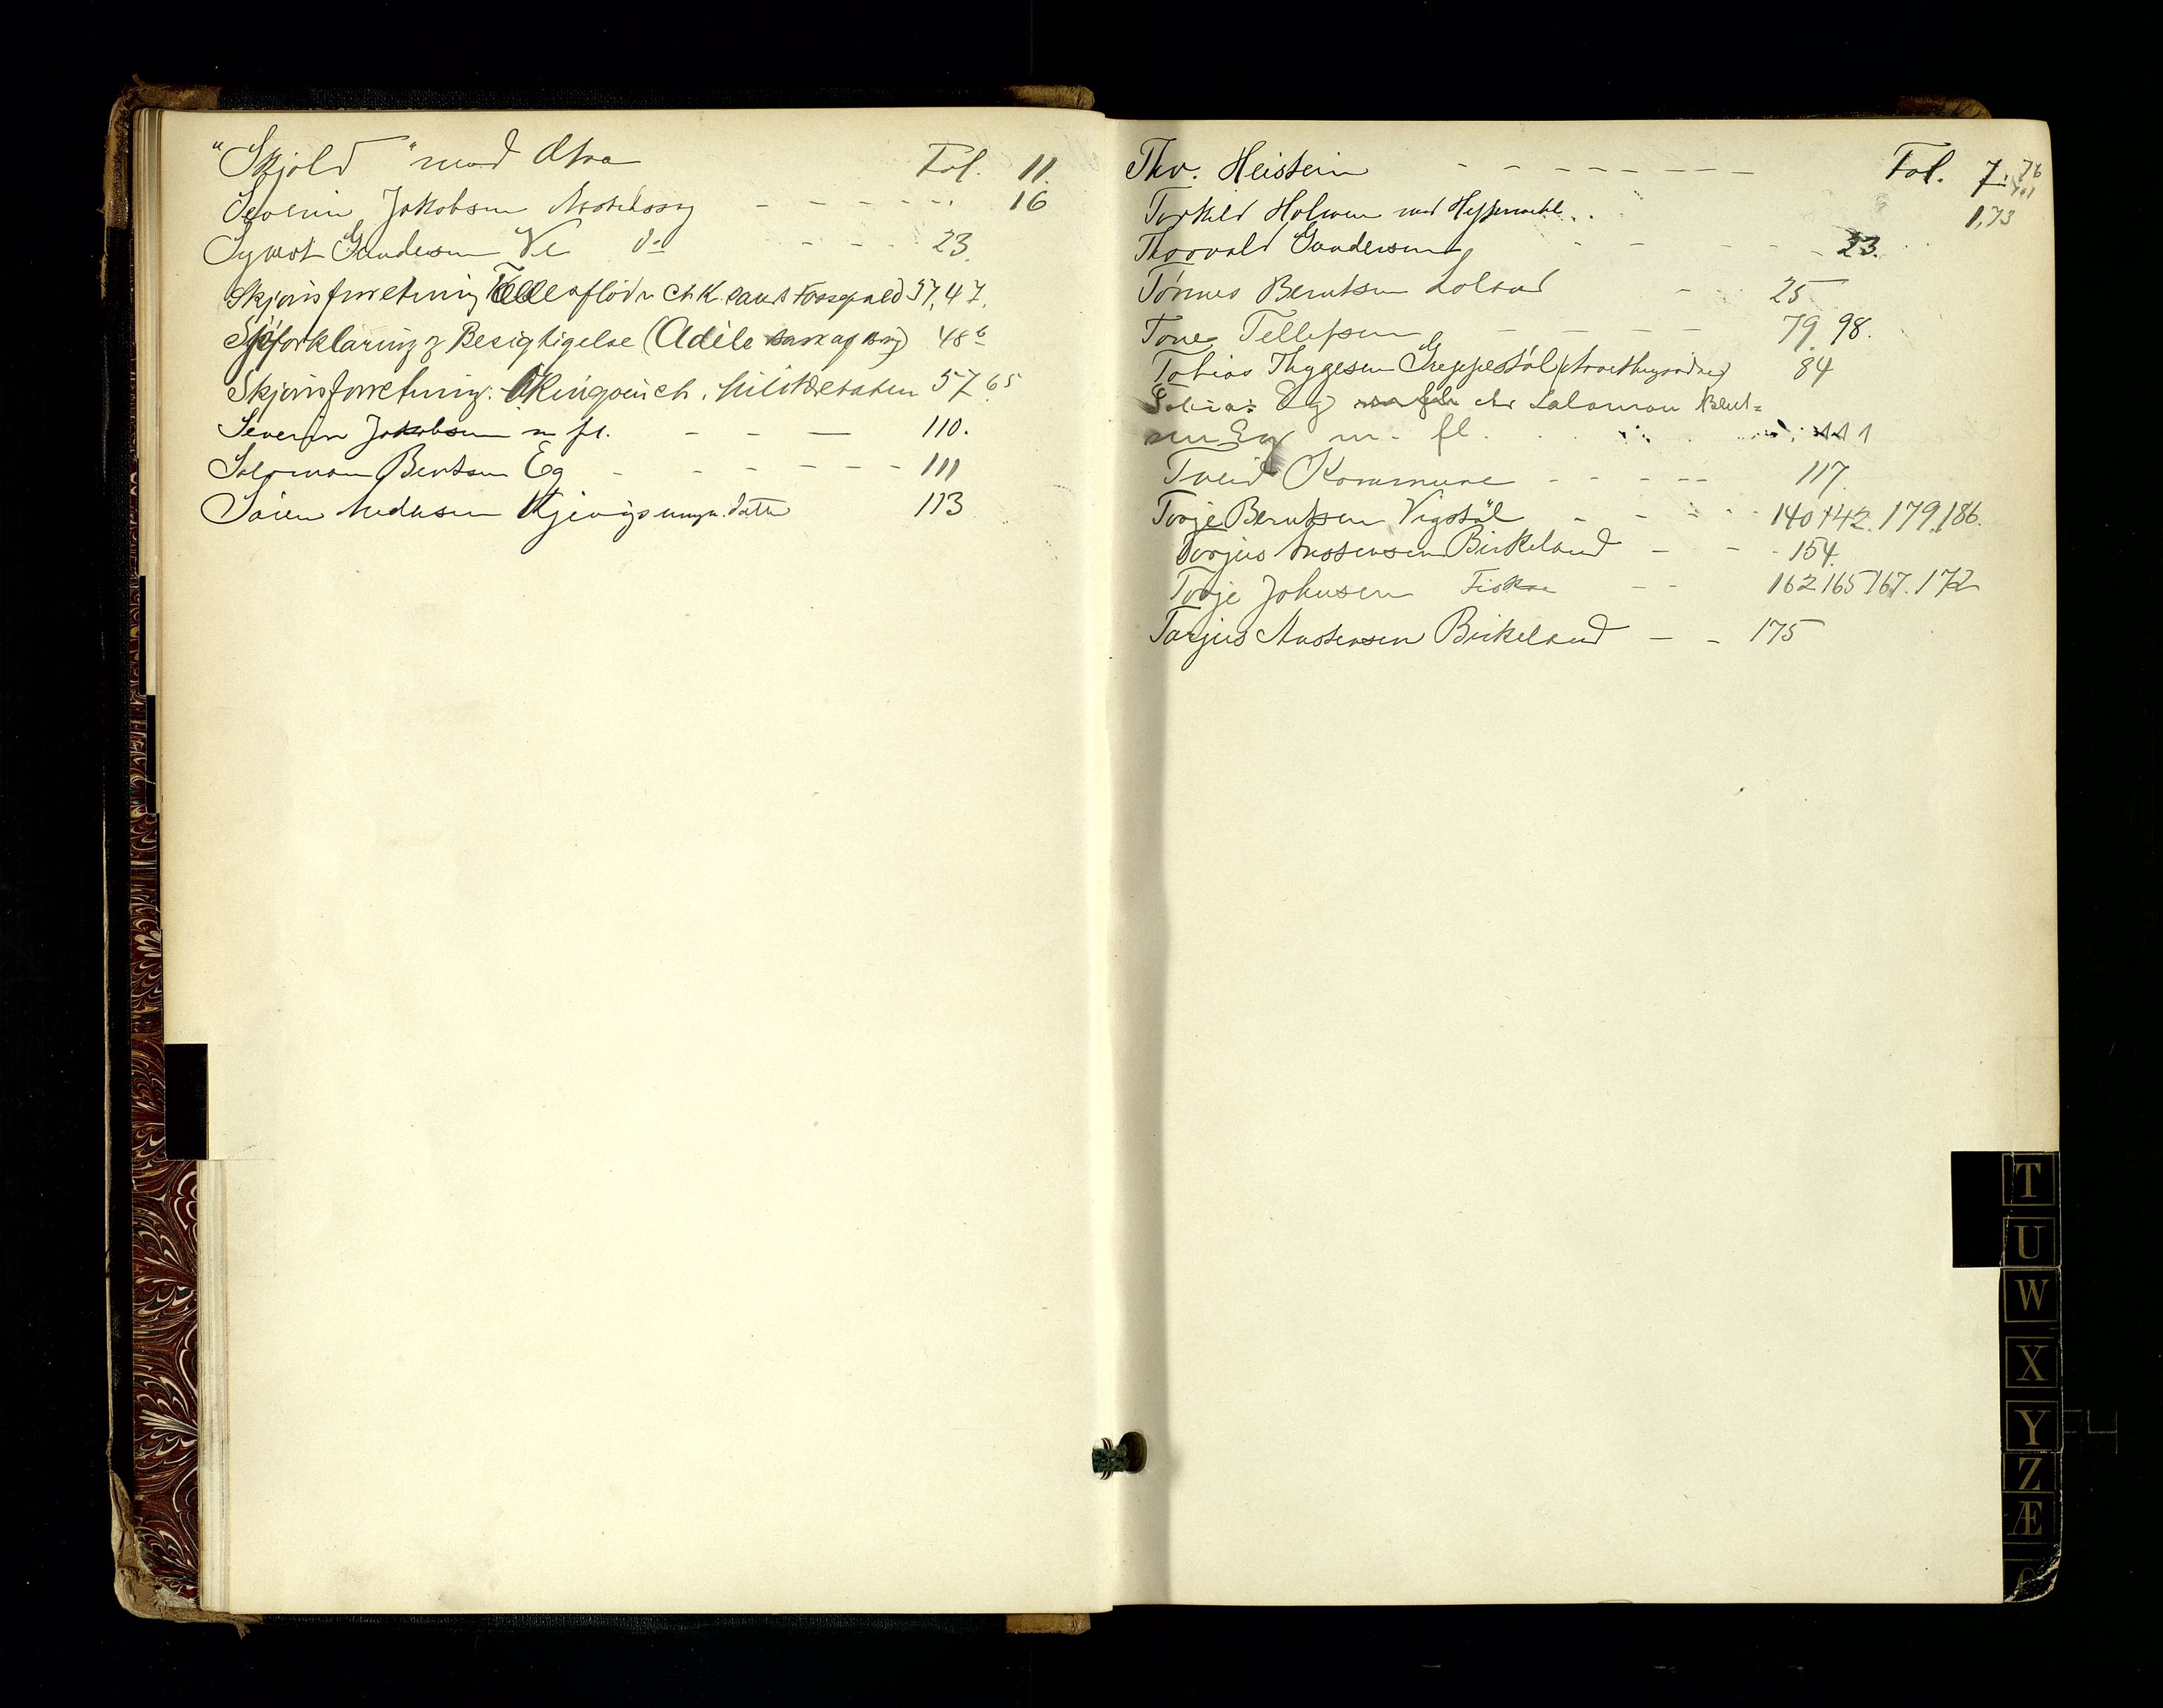 "Skjold" mod Atra Fol. 11.
Severin Jakobsen - - - - - - 16
Sywert Gundersen Ve do - - - 23.
Skjønsforretning Fællesfløtn ch K. sands Fossefald 37, 47.
Sjøforklaring & Besigtigelse (Adéle af ) 48 b
Skjønsforretning: ch. Militæretaten 57 65
Severin Jakobsen m fl. - - - 110.
Salomon Berntsen Eg - - - - - - 111
Sören Andersen Kjevigs umyn. datter 113
Thv. Heistein - - - - - - - - Fol. 7. 76
Torkild Holmen mod . . 1, 73
Thorvald Gundersen - - - - 23.
Tönnes Berntsen Loland - - 25
Tone Tellefsen - - - - 79. 98.
Tobias Thyggesen Greppestöl ( ) 84
Tobias Eg ctr Salomon Bernt=
sen Eg m. fl. . . . . 111
Tveid Kommune - - - - - 117.
Torje Berntsen Vigstöl - - - - 140 142. 179. 186.
Torjus Austensen Birkeland - - - 154.
Torje Johnsen Fiskaa - - 162 165 167. 172
Tarjus Austensen Birkeland - - 175
T
U
W
X
Y
Z
Æ